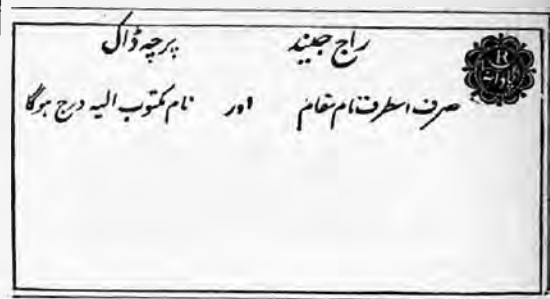 راج جیند پرچہ ڈاک
صرف اسطرف نام مقام اور نام مکتوب الیہ درج ہوگا
R
پاؤ آنہ